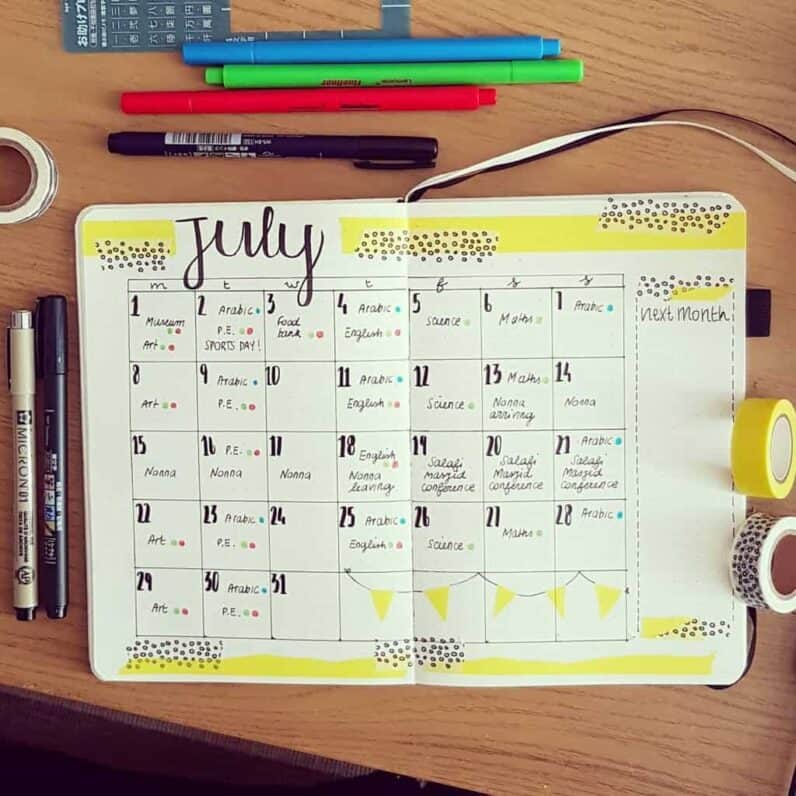 お助けプ
一二三
六七八
千万円
fineliner
July
m t w t f s s
1 Museum
Art
2 Arabic
P.E.
SPORTS DAY!
3 Food
bank
4 Arabic
English
5 Science
6 Maths
7 Arabic
8 Art
9 Arabic
P.E.
10
11 Arabic
English
12 Science
13 Maths
Nonna
arriving
14 Nonna
15 Nonna
16 P.E.
Nonna
17 Nonna
18 English
Nonna
leaving
19 Salafi
Masjid
Conference
20 Salafi
Masjid
Conference
21 Arabic
Salafi
Masjid
Conference
22 Art
23 Arabic
P.E.
24
25 Arabic
English
26 Science
27 Maths
28 Arabic
29 Art
30 Arabic
P.E.
31
next month
MICRON 01